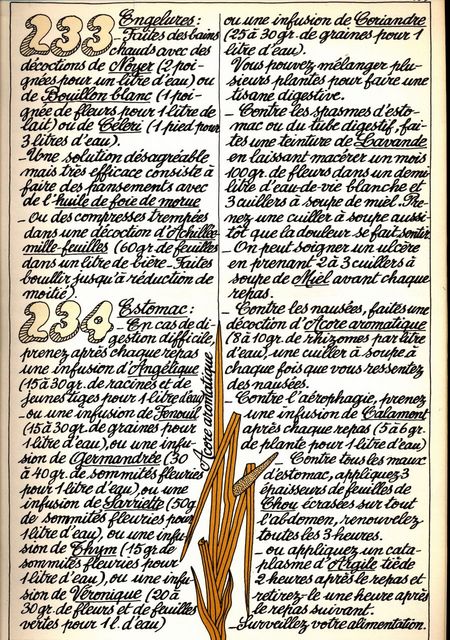 233 Engelures :
_Faites des bains
chauds avec des
décoctions de Noyer (2 poi-
gnées pour un litre d'eau) ou
de Bouillon blanc (1 poi-
gnée de fleurs pour 1 litre de
lait) ou de Céleri (1 pied pour
3 litres d'eau).
_Une solution désagréable
mais très efficace consiste à
faire des pansements avec
de l'huile de foie de morue
_ou des compresses trempées
dans une décoction d'Achillée
mille-feuilles (60gr. de feuilles
dans un litre de bière_Faites
bouillir jusqu'à réduction de
moitié).
234 Estomac :
_En cas de di-
gestion difficile,
prenez après chaque repas
une infusion d'Angélique
(15 à 30gr. de racines et de
jeunes tiges pour 1 litre d'eau)
_ou une infusion de Fenouil
(15 à 30gr. de graines pour
1 litre d'eau), ou une infu-
sion de Germandrée (30
à 40gr. de sommités fleuries
pour 1 litre d'eau), ou une
infusion de Sarriette (50g
de sommités fleuries pour
1 litre d'eau), ou une infu-
sion de Thym (15 gr de
sommités fleuries pour
1 litre d'eau), ou une infu-
sion de Véronique (20 à
30gr. de fleurs et de feuilles
vertes pour 1 l. d'eau)
Acore aromatique
ou une infusion de Coriandre
(25 à 30gr. de graines pour 1
litre d'eau).
Vous pouvez mélanger plu-
sieurs plantes pour faire une
tisane digestive.
_Contre les spasmes d'esto-
mac ou du tube digestif, fai-
tes une teinture de Lavande
en laissant macérer un mois
100gr. de fleurs dans un demi-
litre d'eau-de-vie blanche et
3 cuillers à soupe de miel. Pre-
nez une cuiller à soupe aussi-
tôt que la douleur se fait sentir.
_On peut soigner un ulcère
en prenant 2 à 3 cuillers à
soupe de Miel avant chaque
repas.
_Contre les nausées, faites une
décoction d'Acore aromatique
(8 à 10gr. de rhizomes par litre
d'eau), une cuiller à soupe à
chaque fois que vous ressentez
des nausées.
_Contre l'aérophagie, prenez
une infusion de Calament
après chaque repas (5 à 6gr.
de plante pour 1 litre d'eau)
_Contre tous les maux
d'estomac, appliquez 3
épaisseurs de feuilles de
Chou écrasées sur tout
l'abdomen, renouvelez
toutes les 3 heures.
_ou appliquez un cata-
plasme d'Argile tiède
2 heures après le repas et
retirez-le une heure après
le repas suivant.
_Surveillez votre alimentation.